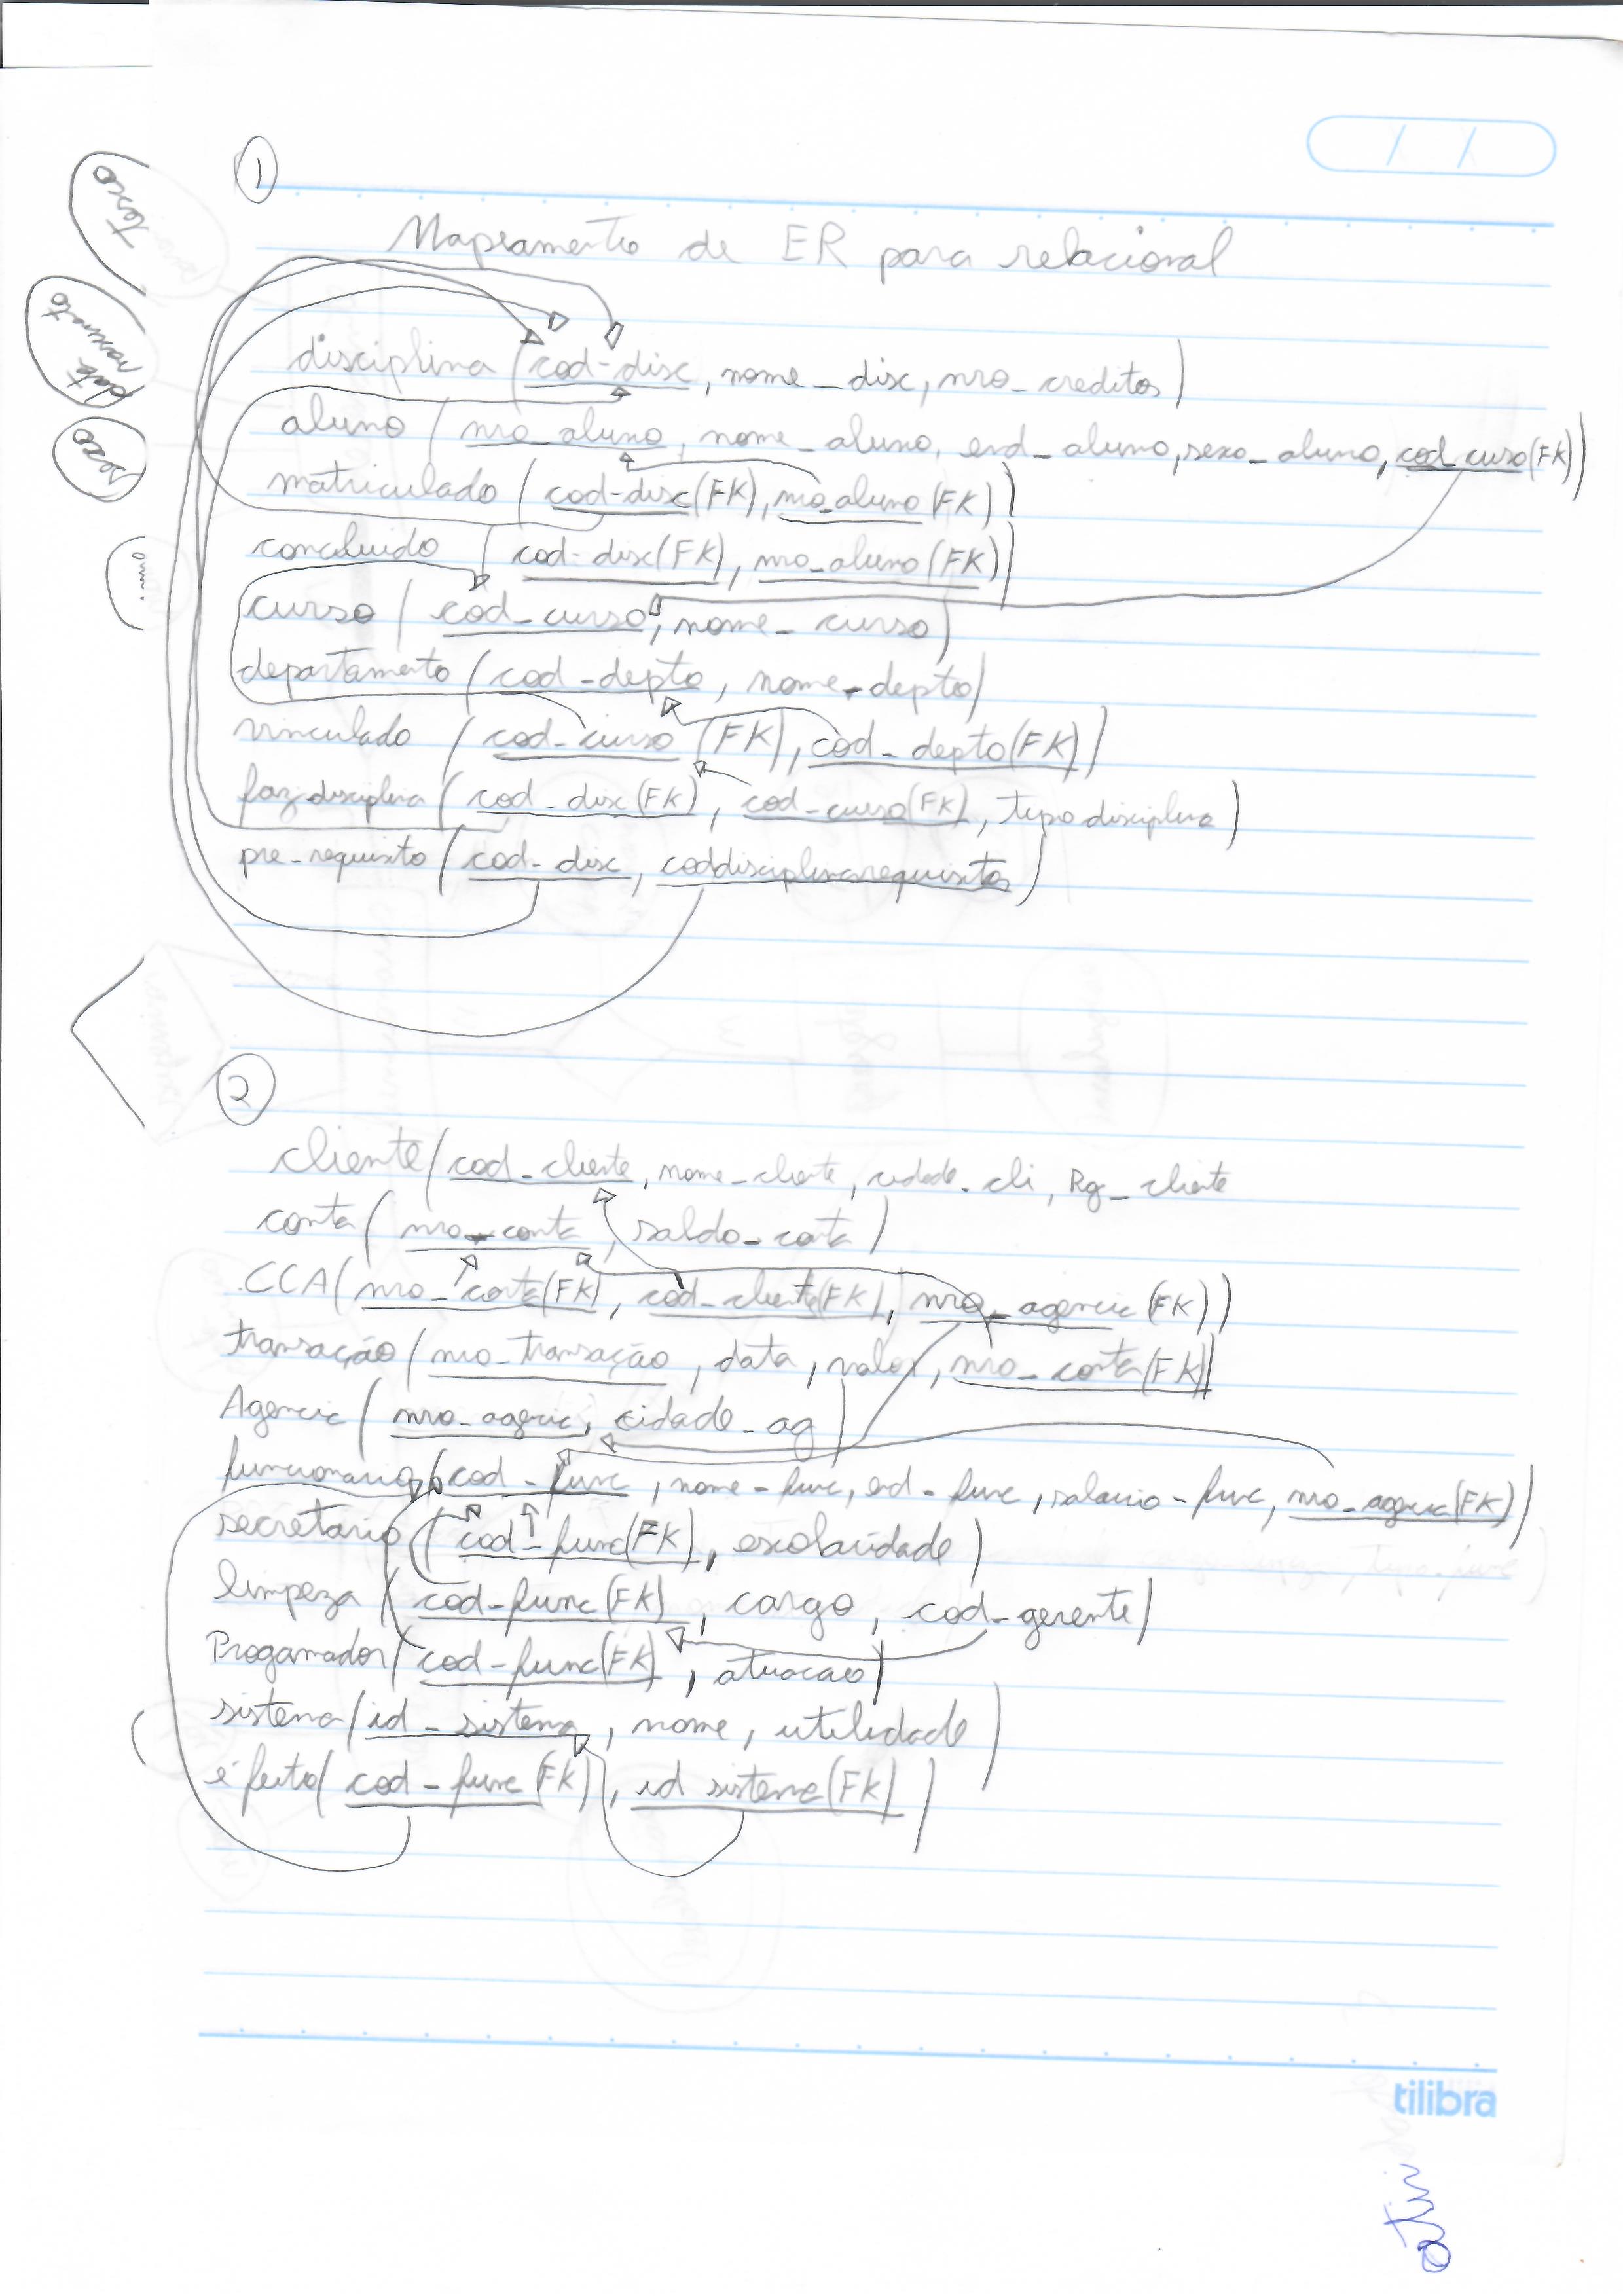 1
Mapeamento de ER para relacional
disciplina (cod-disc, nome_disc, nro_creditos)
aluno (nro_aluno, nome_aluno, end_aluno, sexo_aluno, cod_curso(FK))
matriculado (cod-disc(FK), nro_aluno(FK))
concluido (cod-disc(FK), nro_aluno(FK))
curso (cod_curso, nome_curso)
departamento (cod_depto, nome_depto)
vinculado (cod_curso (FK), cod_depto(FK))
faz disciplina (cod_disc(FK), cod_curso(FK), tipo disciplina)
pre-requisito (cod-disc, coddisciplinarequisitos)
2
cliente (cod_cliente, nome_cliente, cidade_cli, Rg_cliente
conta (nro_conta, saldo_conta)
CCA (nro_conta(FK), cod_cliente(FK), nro_agencia (FK))
transação (nro_transação, data, valor, nro_conta(FK))
Agencia (nro_agencia, cidade_ag)
funcionario (cod_func, nome_func, end_func, salario_func, nro_agencia(FK))
secretario (cod_func(FK), escolaridade)
limpeza (cod-func(FK), cargo, cod_gerente)
Progamador (cod-func(FK), atuacao)
sistema (id_sistema, nome, utilidade)
é feito (cod_func(FK), id sistema(FK))
texco
data nascimento
sexo
tilibra